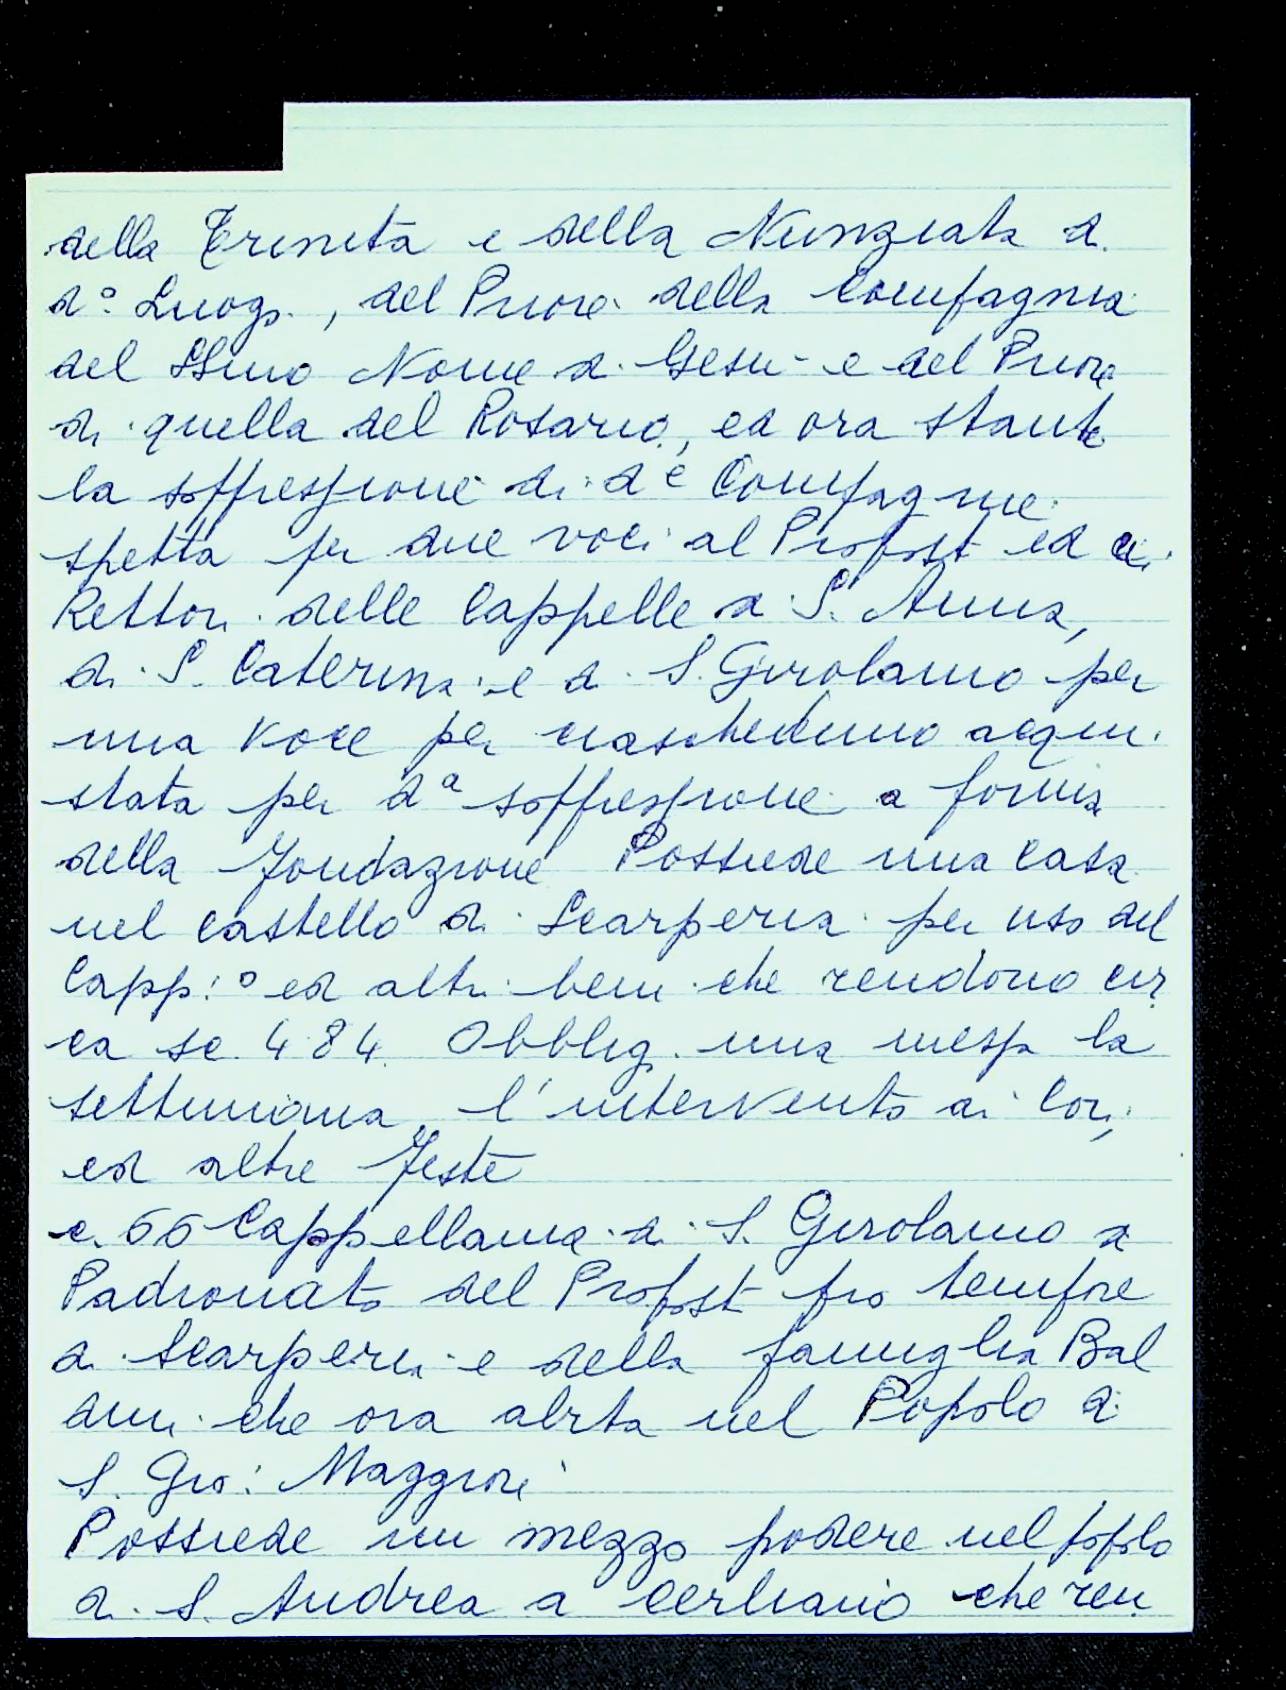 della Trinità e della Nunziata di
d.º Luogo, del Priore della Compagnia
del SSmo Nome di Gesù e del Priore
di quella del Rosario, ed ora stante
la soppressione di dᵉ Compagnie
spetta per due voci al Propost ed ai
Rettori delle Cappelle di S. Anna,
di S. Caterina e di S. Girolamo per
una voce per ciascheduno acqui
stata per dª soppressione a forma
della Fondazione Possiede una Casa
nel Castello di Scarperia per uso del
Capp:º ed altri beni che rendono cir
ca sc. 484. Obblig. una messa la
settimana, l'intervento ai Cori,
ed altre Feste
c. 66 Cappellania di S. Girolamo di
Padronato del Propost pro tempore
di Scarperia e della famiglia Bal
dini che ora abita nel Popolo di
S. Gio: Maggiore
Possiede un mezzo podere nel popolo
di S. Andrea a Cerliano che ren